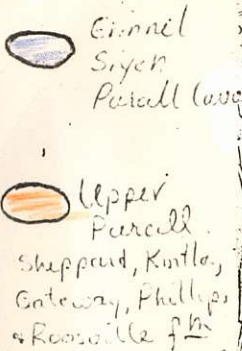 Siyeh
Purcell
Upper
Purcell
Sheppard, Kintla,
Gateway, Phillips,
& Roosville fm